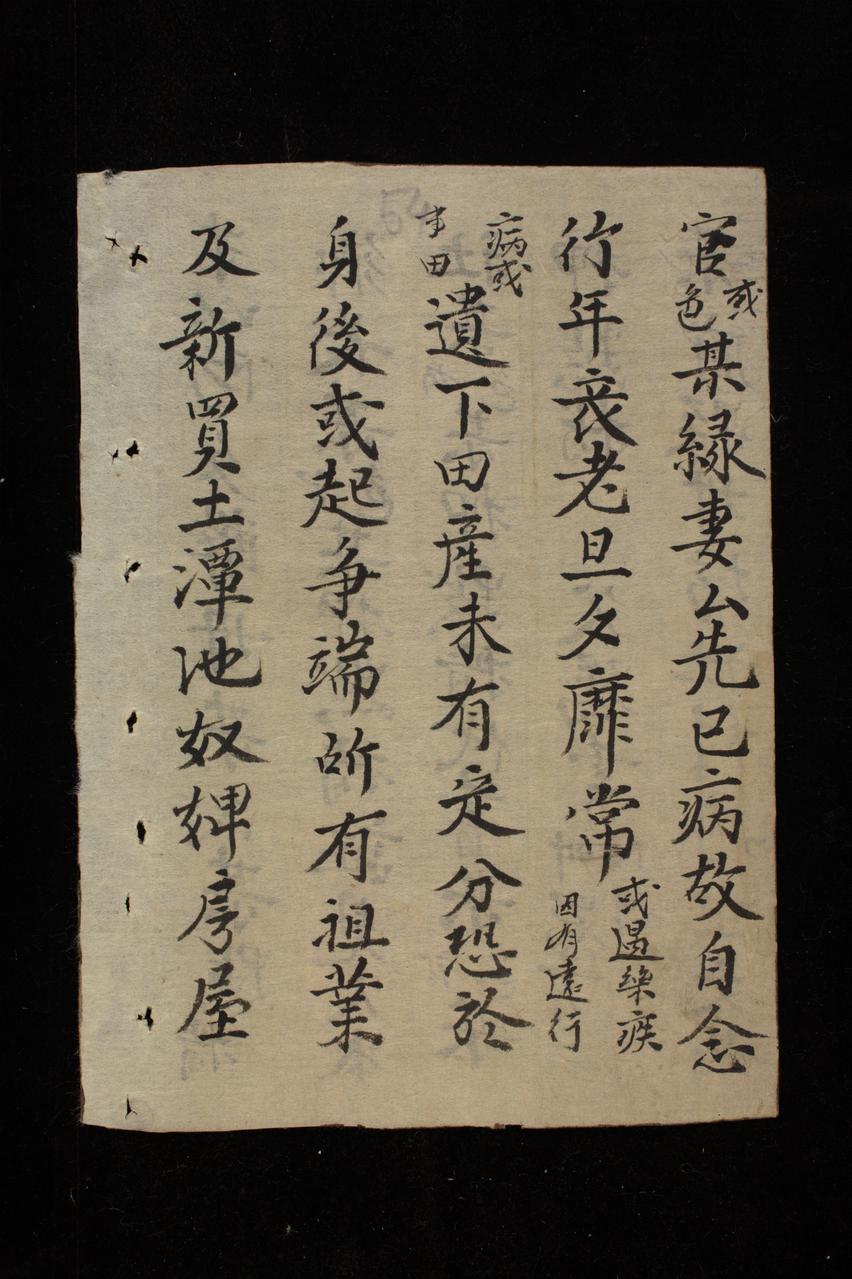 官或色某縁妻厶先已病故自念
行年衰老旦夕靡常或遇𬃊疾因有遠行
病或事田遺下田産未有定分恐於
身後或起争端所有祖業
及新買土潭池奴婢房屋